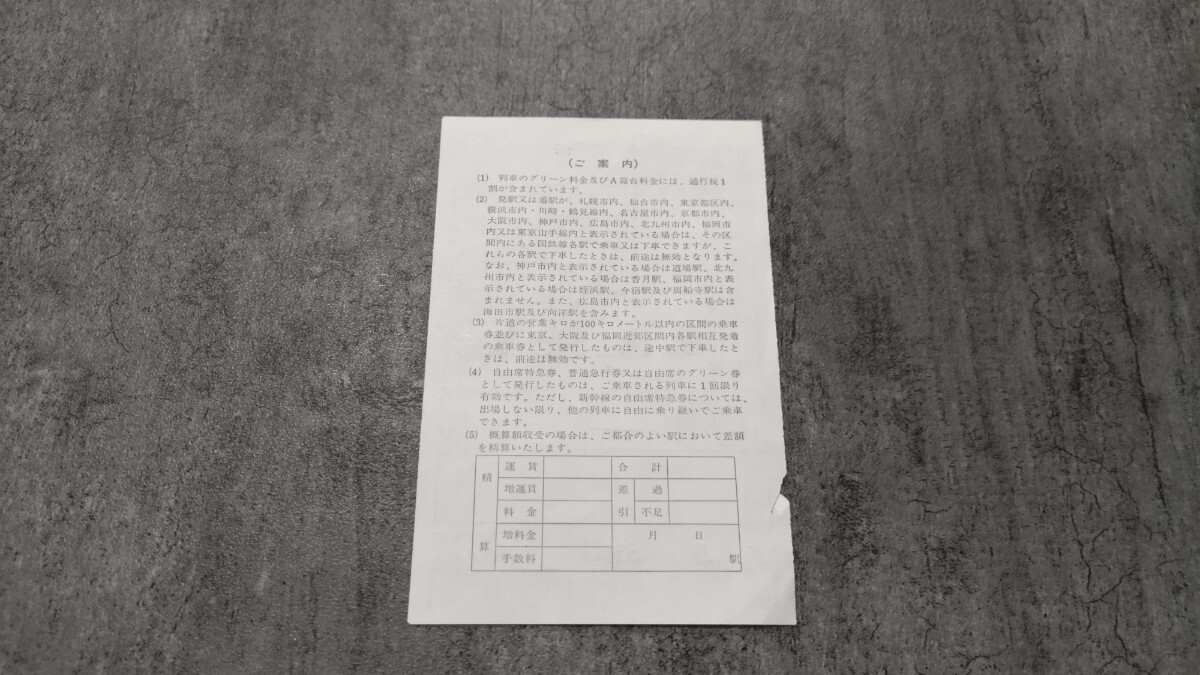 (ご案内)
(1) 列車のグリーン料金及びA寝台料金には、通行税1
割が含まれています。
(2) 発駅又は着駅が、札幌市内、仙台市内、東京都区内、
横浜市内・川崎・鶴見線内、名古屋市内、京都市内、
大阪市内、神戸市内、広島市内、北九州市内、福岡市
内又は東京山手線内と表示されている場合は、その区
間内にある国鉄線各駅で乗車又は下車できますが、こ
れらの各駅で下車したときは、前途は無効となります。
なお、神戸市内と表示されている場合は道場駅、北九
州市内と表示されている場合は香月駅、福岡市内と表
示されている場合は姪浜駅、今宿駅及び周船寺駅は含
まれません。また、広島市内と表示されている場合は
海田市駅及び向洋駅を含みます。
(3) 片道の営業キロが100キロメートル以内の区間の乗車
券並びに東京、大阪及び福岡近郊区間内各駅相互発着
の乗車券として発行したものは、途中駅で下車したと
きは、前途は無効です。
(4) 自由席特急券、普通急行券又は自由席のグリーン券
として発行したものは、ご乗車される列車に1回限り
有効です。ただし、新幹線の自由席特急券については、
出場しない限り、他の列車に自由に乗り継いでご乗車
できます。
(5) 概算額収受の場合は、ご都合のよい駅において差額
を精算いたします。
精算
運賃 合計
増運賃 差引 過
料金 不足
増料金 月 日
手数料 駅